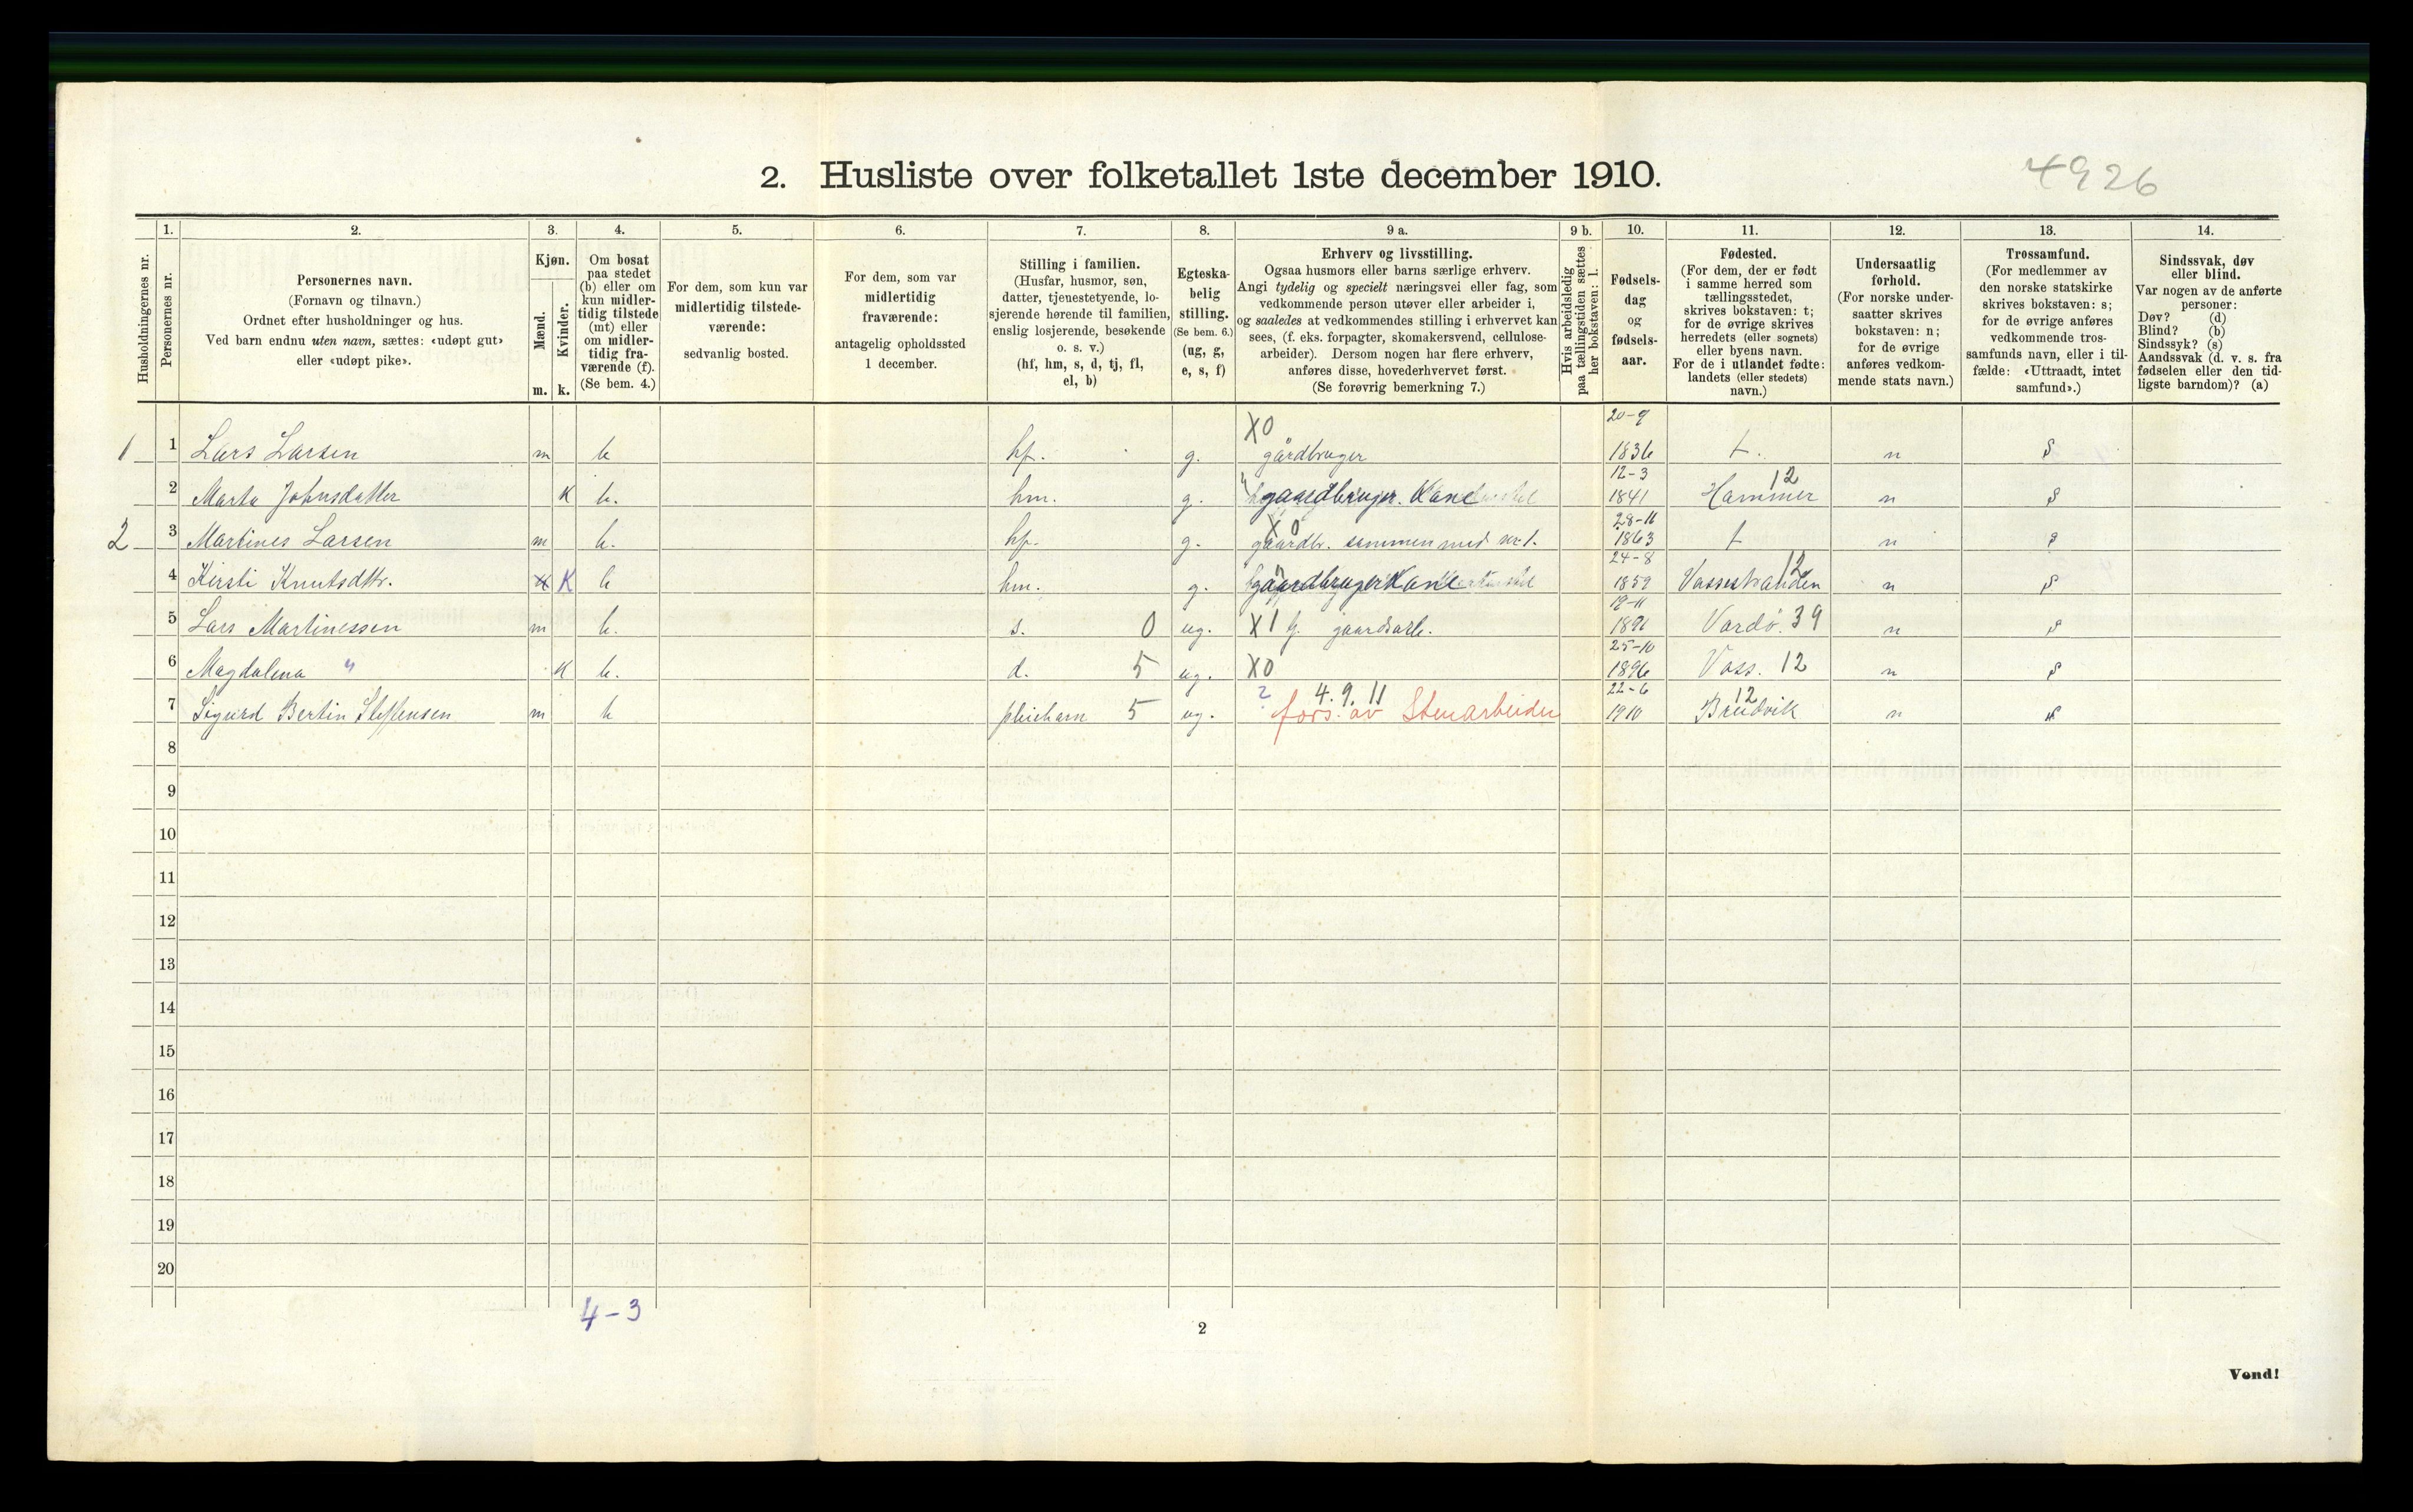 2. Husliste over folketallet 1ste december 1910.
4926
1. 2. 3. 4. 5. 6. 7. 8. 9 a. 9 b. 10. 11. 12. 13. 14.
Husholdningernes nr.
Personernes nr.
Personernes navn.
(Fornavn og tilnavn.)
Ordnet efter husholdninger og hus.
Ved barn endnu uten navn, sættes: «udøpt gut»
eller «udøpt pike».
Kjøn.
Mænd.
Kvinder.
m. k.
Om bosat
paa stedet
(b) eller om
kun midler-
tidig tilstede
(mt) eller
om midler-
tidig fra-
værende (f).
(Se bem. 4.)
For dem, som kun var
midlertidig tilstede-
værende:
sedvanlig bosted.
For dem, som var
midlertidig
fraværende:
antagelig opholdssted
1 december.
Stilling i familien.
(Husfar, husmor, søn,
datter, tjenestetyende, lo-
sjerende hørende til familien,
enslig losjerende, besøkende
o. s. v.)
(hf, hm, s, d, tj, fl,
el, b)
Egteska-
belig
stilling.
(Se bem. 6.)
(ug, g,
e, s, f)
Erhverv og livsstilling.
Ogsaa husmors eller barns særlige erhverv.
Angi tydelig og specielt næringsvei eller fag, som
vedkommende person utøver eller arbeider i,
og saaledes at vedkommendes stilling i erhvervet kan
sees, (f. eks. forpagter, skomakersvend, cellulose-
arbeider). Dersom nogen har flere erhverv,
anføres disse, hovederhvervet først.
(Se forøvrig bemerkning 7.)
Hvis arbeidsledig
paa tællingstiden sættes
her bokstaven: l.
Fødsels-
dag
og
fødsels-
aar.
Fødested.
(For dem, der er født
i samme herred som
tællingsstedet,
skrives bokstaven: t;
for de øvrige skrives
herredets (eller sognets)
eller byens navn.
For de i utlandet fødte:
landets (eller stedets)
navn.)
Undersaatlig
forhold.
(For norske under-
saatter skrives
bokstaven: n;
for de øvrige
anføres vedkom-
mende stats navn.)
Trossamfund.
(For medlemmer av
den norske statskirke
skrives bokstaven: s;
for de øvrige anføres
vedkommende tros-
samfunds navn, eller i til-
fælde: «Uttraadt, intet
samfund».)
Sindssvak, døv
eller blind.
Var nogen av de anførte
personer:
Døv? (d)
Blind? (b)
Sindssyk? (s)
Aandssvak (d. v. s. fra
fødselen eller den tid-
ligste barndom)? (a)
X0 20-9
1 1 Lars Larsen m b hf. g. gårdbruger 1836 t. n s
12-3 12
2 Marta Johnsdatter K b. hm. g. gaardbruger. Kone 1841 Hammer n s
X0 28-11
2 3 Martines Larsen m b. hf. g. gaardbr. sammen med nr 1. 1863 t n s
24-8 12
4 Kirsti Knutsdtr. K b hm. g. gaardbruger Kone 1859 Vassestranden n s
19-11
5 Lars Martinessen m b. s. 0 ug. X1 gaardsarb. 1891 Vardø. 39 n s
25-10
6 Magdalena " K b. d. 5 ug. X0 1896 Voss. 12 n s
? 4. 9. 11 22-6 12
7 Sigurd Bertin Steffensen m b pleiebarn 5 ug. fors. av Stenarbeider 1910 Breidvik n s
8
9
10
11
12
13
14
15
16
17
18
19
20
4-3
2
Vend!